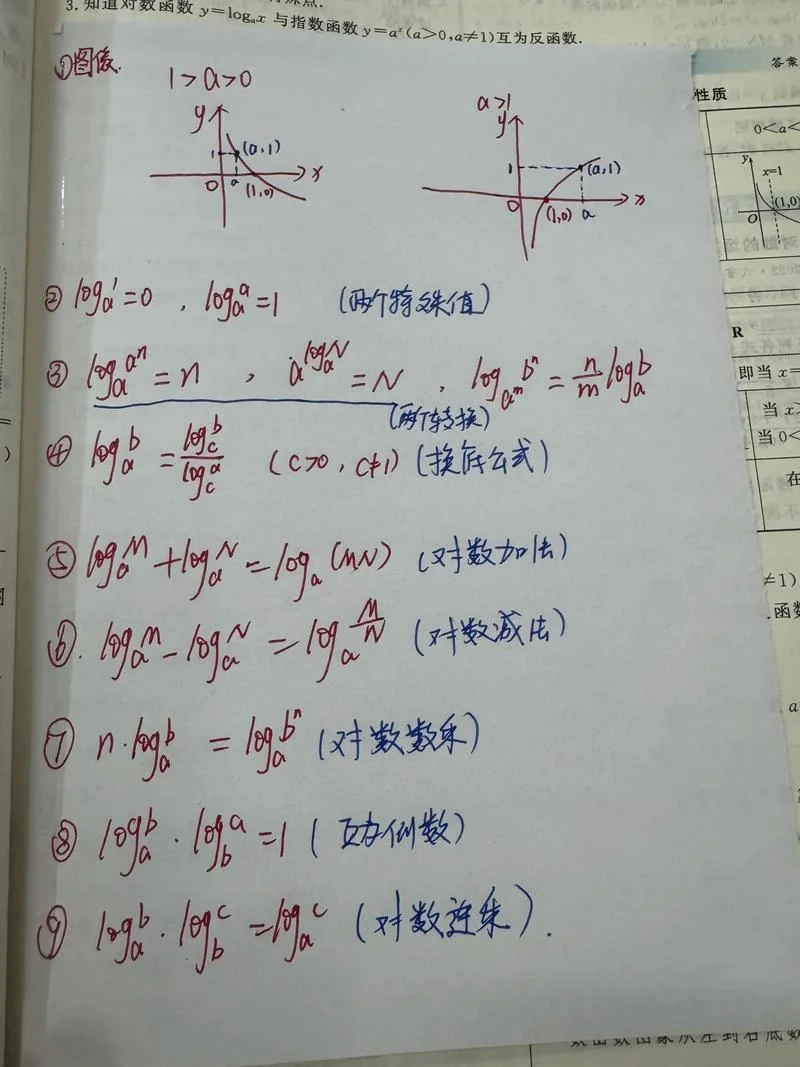 3. 知道对数函数 y=logₐx 与指数函数 y=aˣ(a>0,a≠1)互为反函数.
答案
性质
①图像.
1>a>0
a>1
0<a<
y
1
(a,1)
O
a
(1,0)
x
y
1
(a,1)
O
(1,0)
a
x
y
x=1
(1,0)
O
② logₐ1=0 , logₐa=1 (两个特殊值)
R
③ logₐaⁿ=n , a^(logₐN)=N , log_(a^m) bⁿ = n/m logₐb
即当 x=
(两个转换)
当 x>
当 0<
④ logₐb = log_c b / log_c a (c>0, c≠1) (换底公式)
在
⑤ logₐM+logₐN=logₐ(MN) (对数加法)
≠1)
函数
⑥. logₐM-logₐN=logₐ M/N (对数减法)
a
⑦ n·logₐb = logₐbⁿ (对数数乘)
⑧ logₐb · log_b a=1 (互为倒数)
⑨ logₐb · log_b c=logₐc (对数连乘).